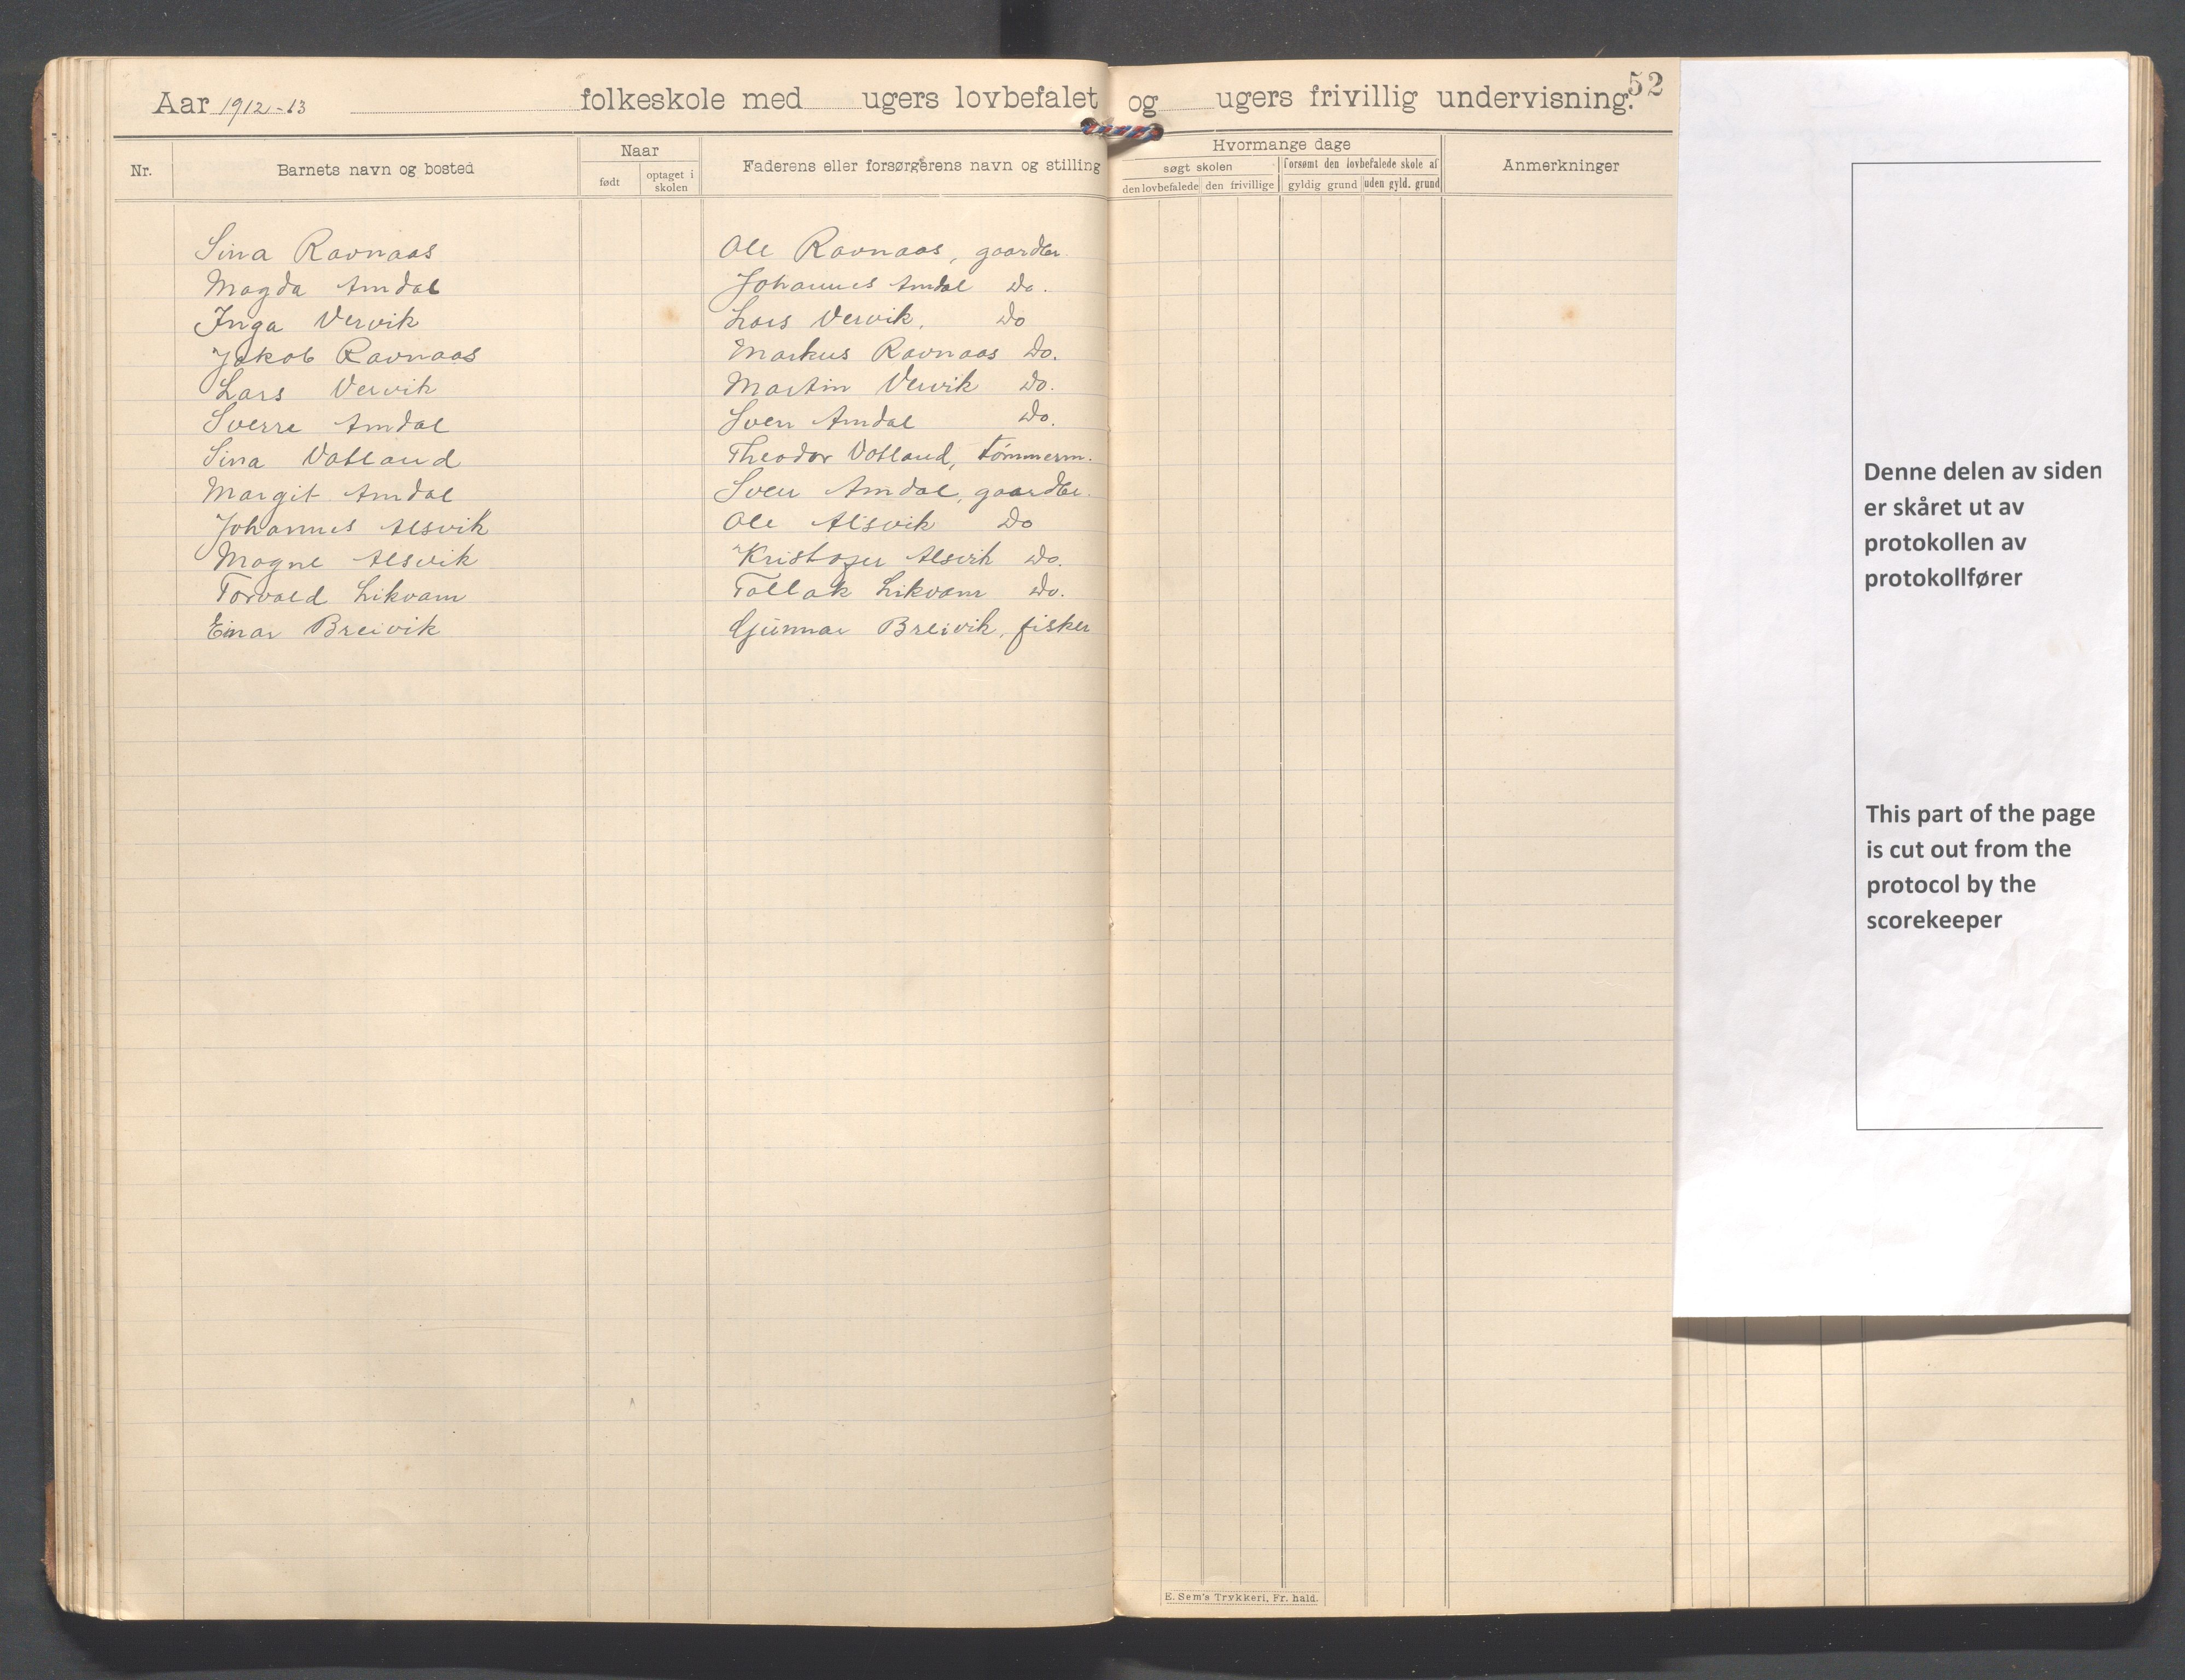 Aar 1912-13 folkeskole med ugers lovbefalet og ugers frivillig undervisning.
52
Nr.
Barnets navn og bosted
Naar
født
optaget i skolen
Faderens eller forsørgerens navn og stilling
Hvormange dage
søgt skolen
den lovbefalede
den frivillige
forsømt den lovbefalede skole af
gyldig grund
uden gyld. grund
Anmerkninger
Sina Ravnaas Ole Ravnaas, gaardbr.
Magda Amdal Johannes Amdal Do.
Inga Vervik Lars Vervik, Do
Jakob Ravnaas Markus Ravnaas Do.
Lars Vervik Martin Vervik Do.
Sverre Amdal Sven Amdal Do.
Sina Vatland Theodor Vatland, tømmerm.
Margit Amdal Sven Amdal, gaardbr.
Johannes Alsvik Ole Alsvik Do
Magne Alsvik Kristofer Alsvik Do.
Torvald Likvam Tallak Likvam Do.
Einar Breivik Gunnar Breivik, fisker
E. Sem's Trykkeri, Fr. hald.
Denne delen av siden
er skåret ut av
protokollen av
protokollfører
This part of the page
is cut out from the
protocol by the
scorekeeper